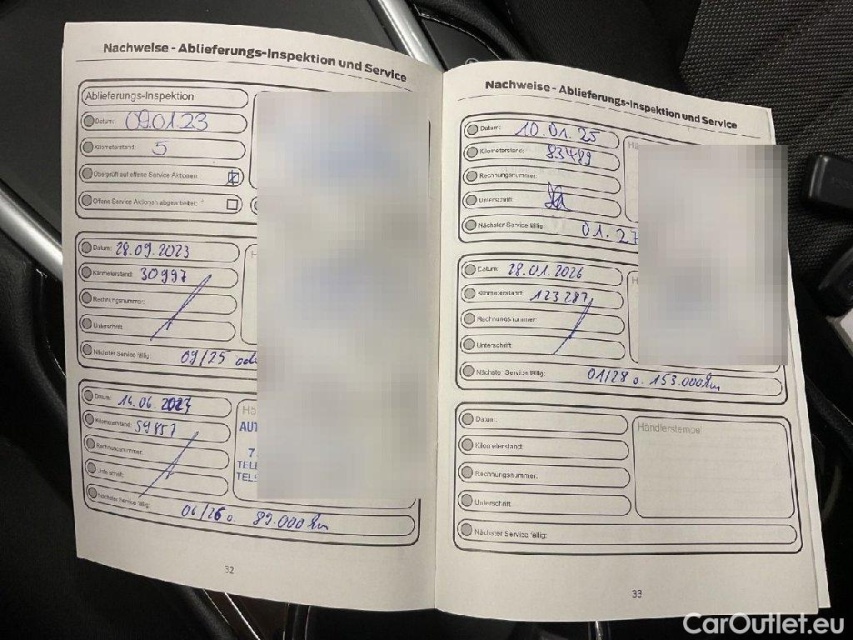 Nachweise - Ablieferungs-Inspektion und Service
Ablieferungs-Inspektion
Datum: 09.01.23
Kilometerstand: 5
Überprüft auf offene Service Aktionen:
Offene Service Aktionen abgearbeitet:
Datum: 28.09.2023
Kilometerstand: 30997
Rechnungsnummer:
Unterschrift:
Nächster Service fällig: 09/25
Datum: 14.06.
Kilometerstand: 59857
Rechnungsnummer:
Unterschrift:
Nächster Service fällig: 06/26 o. 89.000 km
AUT
7
TELE
TEL
32
Nachweise - Ablieferungs-Inspektion und Service
Datum: 10.01.25
Kilometerstand: 83489
Rechnungsnummer:
Unterschrift:
Nächster Service fällig: 01.27
Datum: 28.01.2026
Kilometerstand: 123287
Rechnungsnummer:
Unterschrift:
Nächster Service fällig: 01/28 o. 153.000 km
Datum:
Kilometerstand:
Rechnungsnummer:
Unterschrift:
Nächster Service fällig:
Händlerstempel
33
CarOutlet.eu